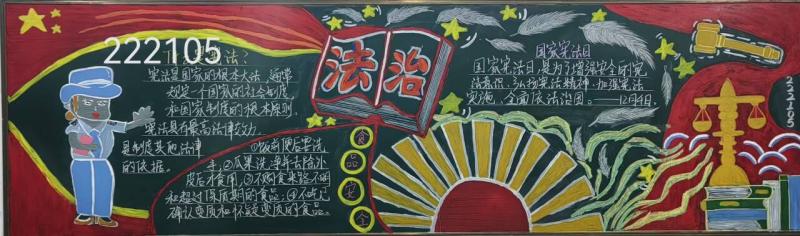 222105
法?
宪法是国家的根本大法,通常
规定一个国家的社会制度
和国家制度的根本原则,
宪法具有最高法律效力,
是制定其他法律
的依据。
法治
国家宪法日
国家宪法日,是为了增强全民的宪
法意识,弘扬宪法精神,加强宪法
实施,全面依法治国。——12月4日。
食品安全
①饭前便后要洗
手;②瓜果洗净并去除外
皮后才食用;③不购食来路不明
和超过保质期的食品;④不吃已
确认变质和怀疑变质的食品。
222105